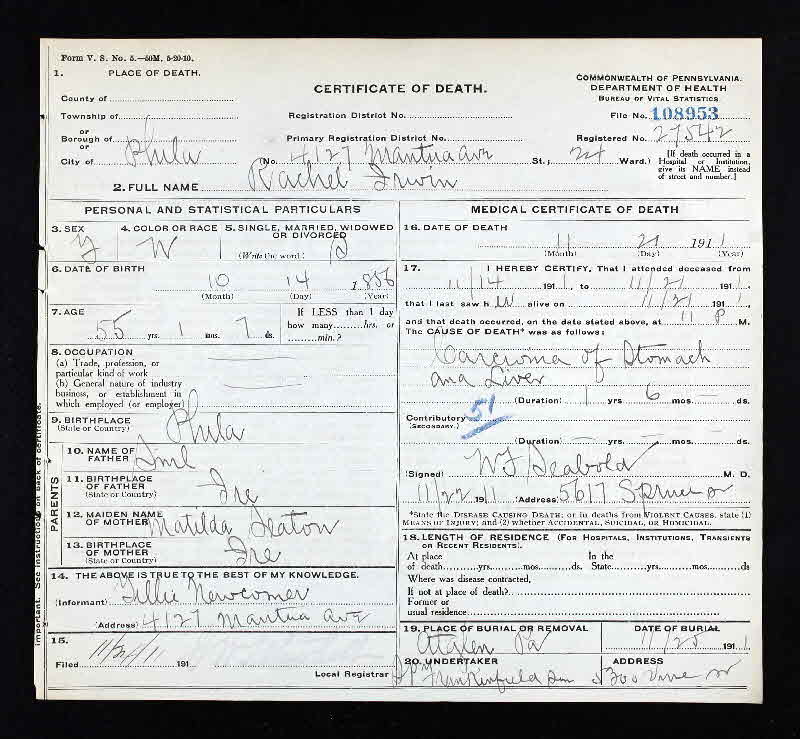 Form V. S. No. 5.—50M. 5-20-10.
1. PLACE OF DEATH.
CERTIFICATE OF DEATH.
COMMONWEALTH OF PENNSYLVANIA.
DEPARTMENT OF HEALTH
BUREAU OF VITAL STATISTICS
County of
Township of
Registration District No.
File No. 108953
or
Borough of
Primary Registration District No.
Registered No. 27542
or
City of Phila
(No. 4127 Mantua Ave St.; 24 Ward.)
[If death occurred in a Hospital or Institution, give its NAME instead of street and number.]
2. FULL NAME Rachel Irwin
PERSONAL AND STATISTICAL PARTICULARS
3. SEX
4. COLOR OR RACE W
5. SINGLE, MARRIED, WIDOWED OR DIVORCED
(Write the word)
6. DATE OF BIRTH
10 14 1856
(Month) (Day) (Year)
7. AGE
55 yrs. 1 mos. 7 ds.
If LESS than 1 day how many hrs. or min.?
8. OCCUPATION
(a) Trade, profession, or particular kind of work
(b) General nature of industry business, or establishment in which employed (or employer)
9. BIRTHPLACE
(State or Country) Phila
PARENTS
10. NAME OF FATHER
11. BIRTHPLACE OF FATHER
(State or Country) Ire
12. MAIDEN NAME OF MOTHER Matilda Seaton
13. BIRTHPLACE OF MOTHER
(State or Country) Ire
14. THE ABOVE IS TRUE TO THE BEST OF MY KNOWLEDGE.
(Informant) Tillie Newcomer
(Address) 4127 Mantua Ave
15.
Filed 11/24/11 191
Local Registrar
important. See instructions on back of certificate.
MEDICAL CERTIFICATE OF DEATH
16. DATE OF DEATH
11 21 1911
(Month) (Day) (Year)
17. I HEREBY CERTIFY, That I attended deceased from
11/14 1911, to 11/21 1911,
that I last saw her alive on 11/21 1911
and that death occurred, on the date stated above, at 11 P M.
The CAUSE OF DEATH* was as follows:
Carcinoma of Stomach
and Liver
(Duration) 1 yrs 6 mos. — ds.
Contributory 51
(SECONDARY.)
(Duration) — yrs. — mos. — ds.
(Signed) W F Seabold M. D.
11/22 1911 (Address) 5617 Spruce st
*State the DISEASE CAUSING DEATH; or in deaths from VIOLENT CAUSES, state (1) MEANS OF INJURY; and (2) whether ACCIDENTAL, SUICIDAL, OR HOMICIDAL.
18. LENGTH OF RESIDENCE (FOR HOSPITALS, INSTITUTIONS, TRANSIENTS OR RECENT RESIDENTS).
At place of death yrs. mos. ds. In the State yrs. mos. ds
Where was disease contracted,
If not at place of death?
Former or
usual residence
19. PLACE OF BURIAL OR REMOVAL
Atglen Pa
DATE OF BURIAL
11/25 1911
20. UNDERTAKER
Frankenfield Son
ADDRESS
5300 Vine st